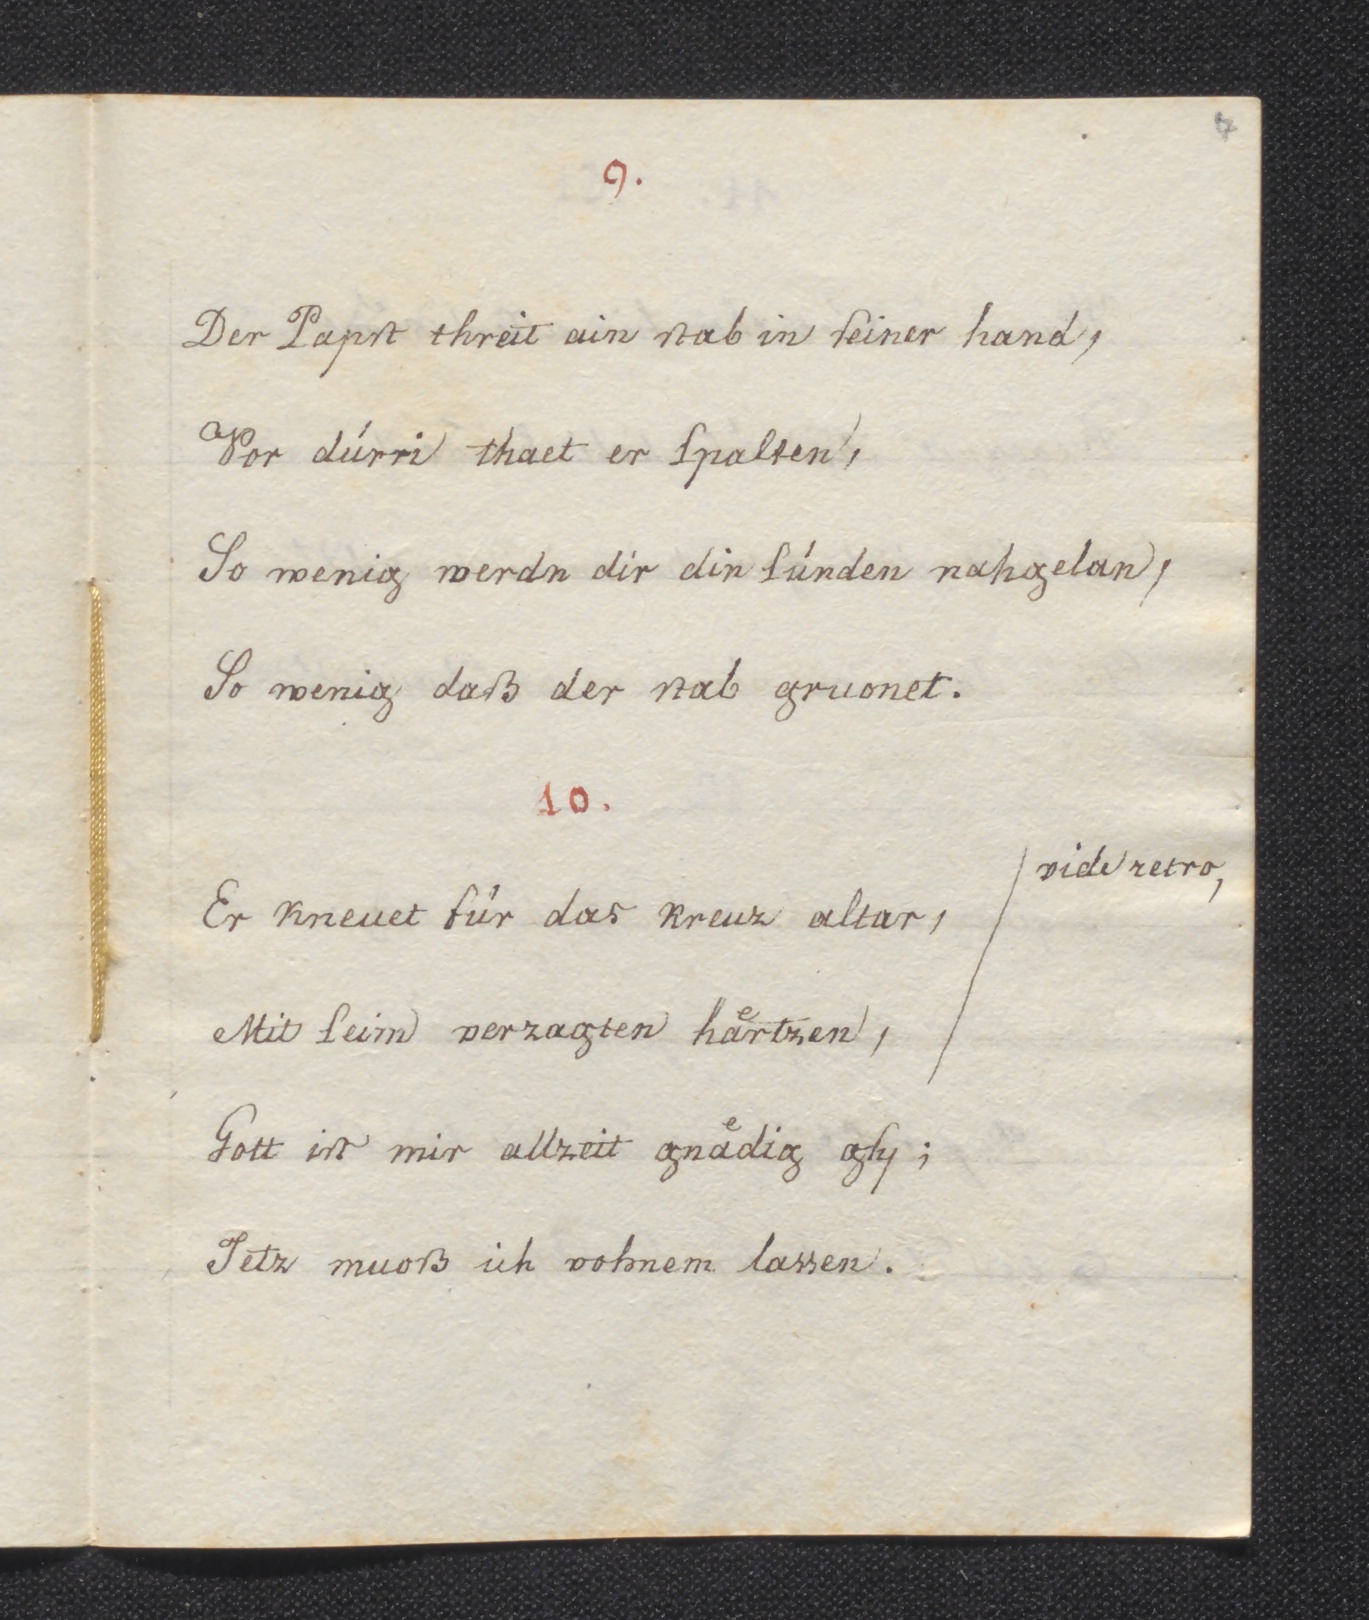 4
9.
Der Papst threit ain stab in seiner hand,
Vor dúrri thaet er spalten,
So wenig werdn dir din súnden nahgelan,
So wenig daß der stab gruonet.
10.
vide retro,
Er kneuet fúr das kreuz altar,
Mit seim verzagten haͤrtzen,
Gott ist mir allzeit gnaͤdig gsy;
Jetz muoß ich vohnem lassen.